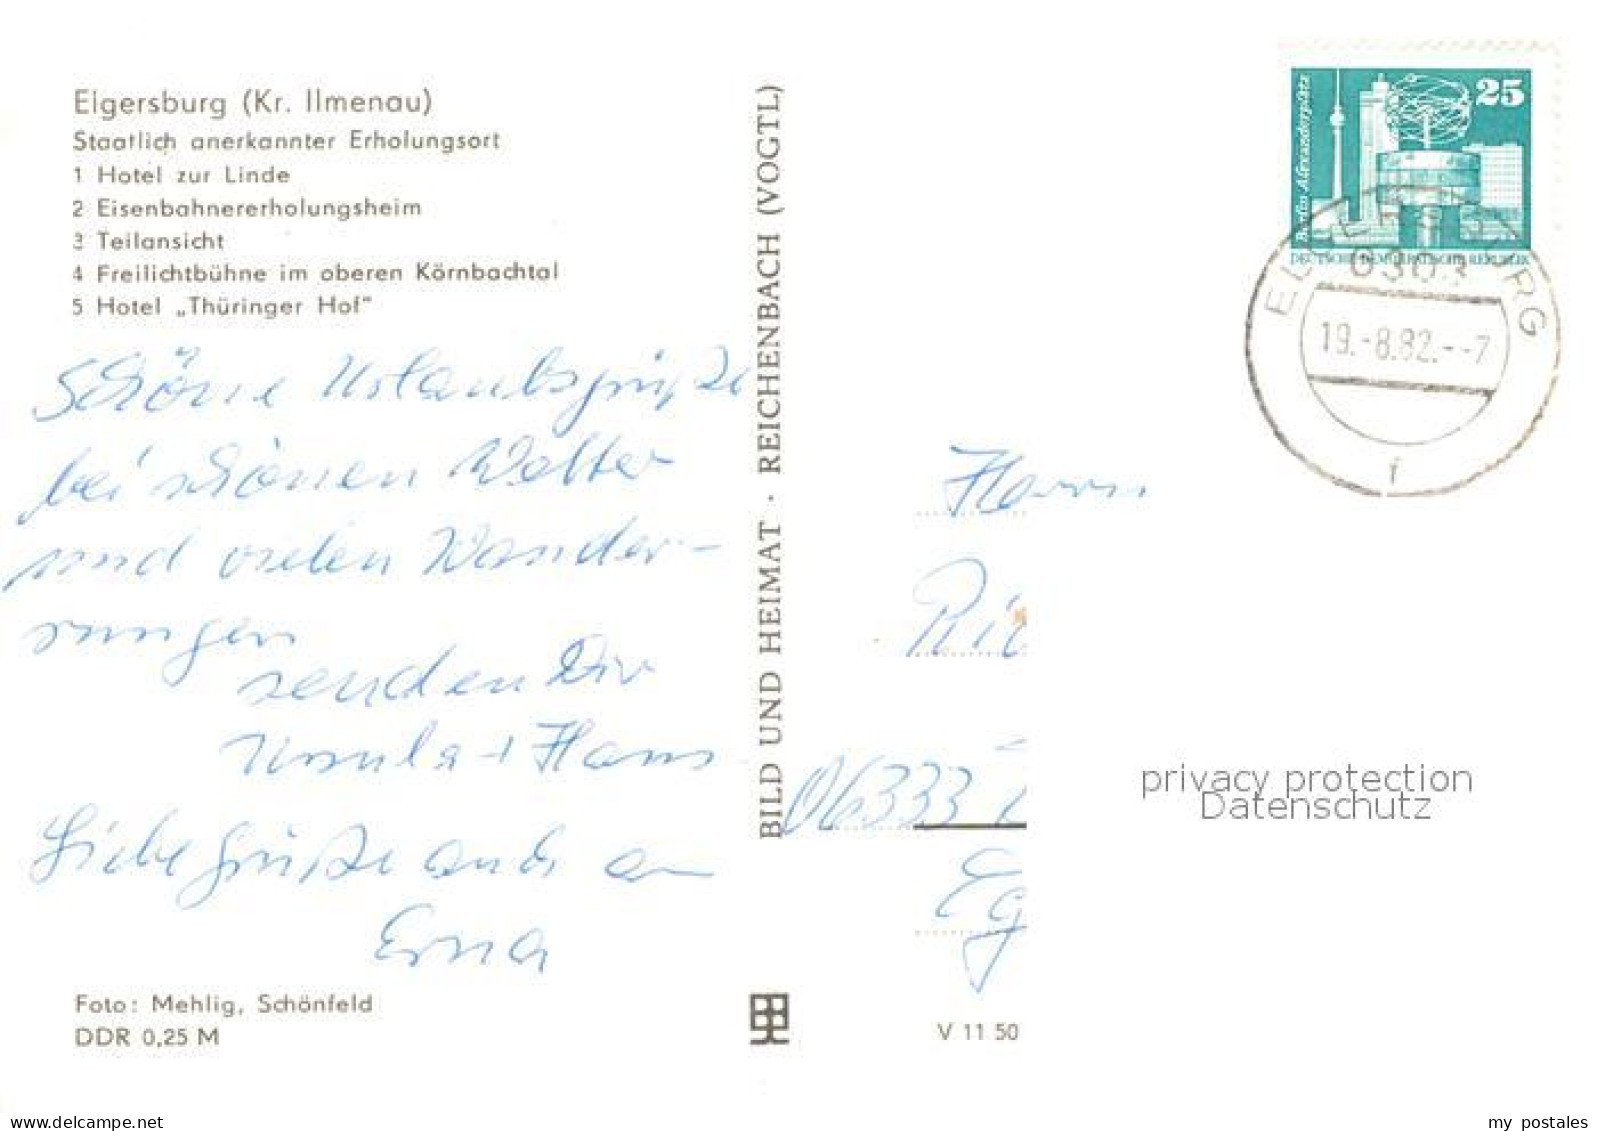 Elgersburg (Kr. Ilmenau)
Staatlich anerkannter Erholungsort
1 Hotel zur Linde
2 Eisenbahnererholungsheim
3 Teilansicht
4 Freilichtbühne im oberen Körnbachtal
5 Hotel „Thüringer Hof“
Schöne Urlaubsgrüße
bei schönen Wetter
und vielen Wander-
rungen
senden Dir
Ursula + Hans
Liebe Grüße auch an
Erna
Foto: Mehlig, Schönfeld
DDR 0,25 M
BILD UND HEIMAT · REICHENBACH (VOGTL)
V 11 50
25
Berlin Alexanderplatz
DEUTSCHE DEMOKRATISCHE REPUBLIK
ELGERSBURG
6303
19.-8.82.--7
f
Herrn
06333
privacy protection
Datenschutz
www.delcampe.net
my_postales